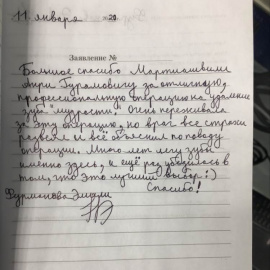 11 января 20
Заявление №
Большое спасибо Мартиашвили
Яғри Гурамовичу за отличную,
профессиональную операцию на удаление
зуба "мудрости". Очень переживала
за эту операцию, но врач все страхи
развеял и всё объяснил по поводу
операции. Много лет лечу зубы
именно здесь, и ещё раз убедилась в
том, что это лучший выбор :)
Фурманова Эмили Спасибо!